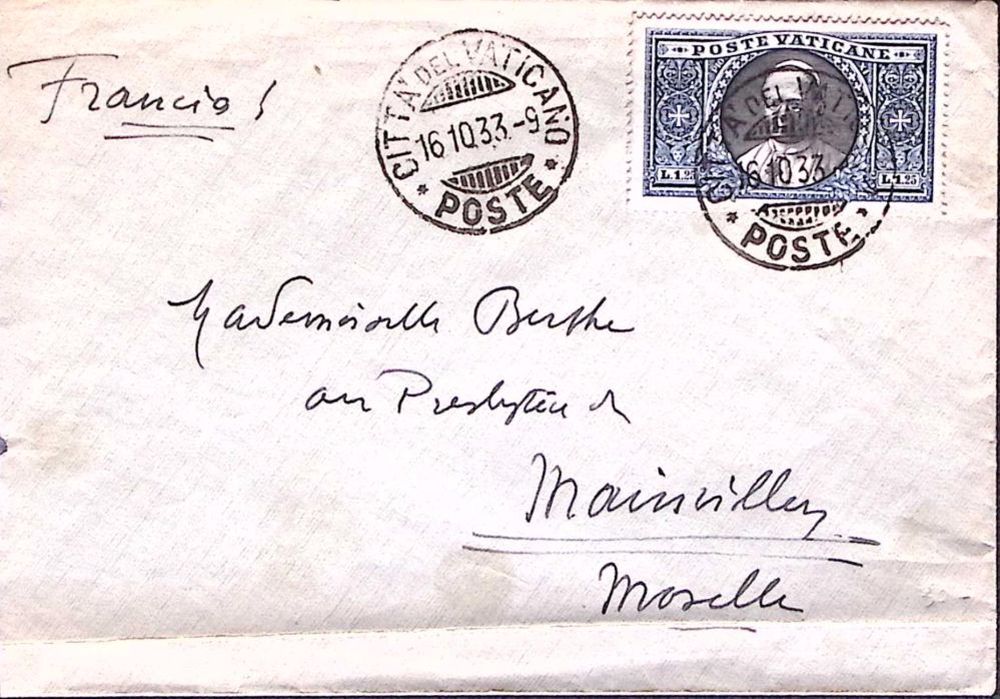 Francia
CITTA' DEL VATICANO
16.10.33.-9
* POSTE *
POSTE VATICANE
L. 1.25 L. 1.25
CITTA' DEL VATICANO
16.10.33
* POSTE *
Mademoiselle Berthe
au Presbytère de
Mainvillers
Moselle